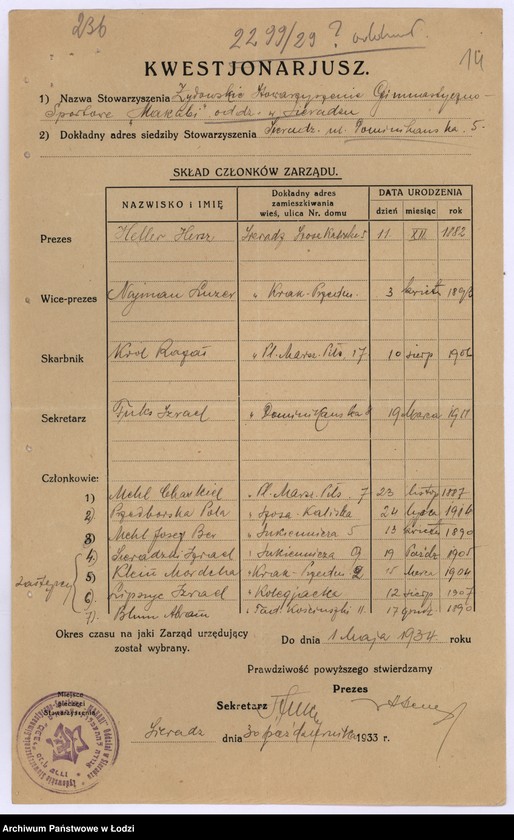 236
2299/29 ?
14
KWESTJONARJUSZ.
1) Nazwa Stowarzyszenia Żydowskie Stowarzyszenie Gimnastyczno-
Sportowe "Makabi" oddz. w Sieradzu
2) Dokładny adres siedziby Stowarzyszenia Sieradz ul. Dominikańska 5.
SKŁAD CZŁONKÓW ZARZĄDU.
NAZWISKO i IMIĘ Dokładny adres zamieszkiwania wieś, ulica Nr. domu DATA URODZENIA
dzień miesiąc rok
Prezes Heller Hersz Sieradz 11 XII 1882
Wice-prezes Najman Luzer " Krak. Przedm. 3 kwiet.
Skarbnik " Pl. Marsz. Piłs. 17 10 sierp 1906
Sekretarz Fuks Izrael " Dominikańska 19 Marca 1911
Członkowie:
1) Mehl Chaskiel " Pl. Marsz. Piłs. 7 23 listop 1887
2) Przedborska Pola " Szosa-Kaliska 24 lipca
3) Mehl Josef Ber " Sukiennicza 5 13 kwietn 1890
zastępcy
4) Sieradzki Izrael " Sukiennicza 9 19 Paźdz. 1905
5) Klein Mordcha " Krak-Przedm 2 15 Marca 1904
6) Lipszyc Izrael " Kolegjacka 12 sierp 1907
7) Blum Abram " Tad. Kościuszki 11. 17 grudz 1890
Okres czasu na jaki Zarząd urzędujący
został wybrany.
Do dnia 1 Maja 1934. roku
Prawdziwość powyższego stwierdzamy
Sekretarz Prezes
Miejsce
pieczęci
Stowarzyszenia
Sieradz dnia 30 października 1933 r.
Archiwum Państwowe w Łodzi